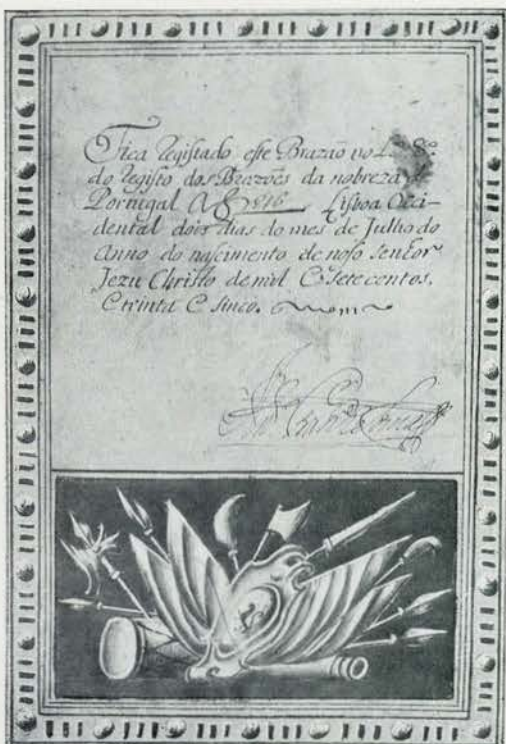 Fica Regiſtado eſte Brazaõ no L.
do Regiſto dos Brazoẽs da nobreza de
Portugal A f 816 Liſboa Occi-
dental dois dias do mes de Julho do
Anno do naſcimento de noſo ſenhor
Jezu Chriſto de mil E ſete centos.
E trinta E ſinco.